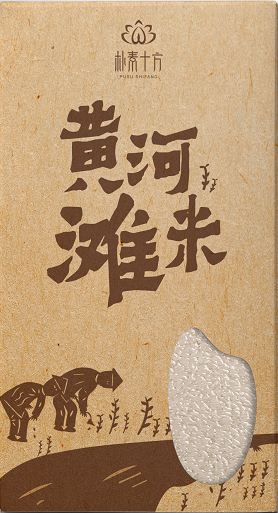 朴素十方
PUSU SHIFANG
黄河
滩米